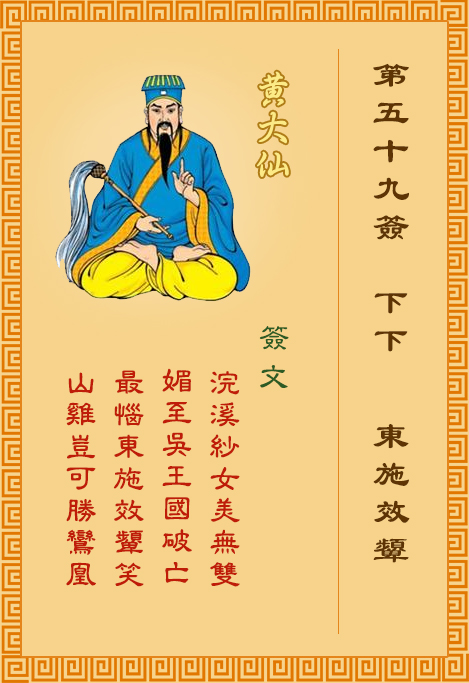 第五十九簽 下下 東施效顰
黃大仙
簽文
浣溪紗女美無雙
媚至吳王國破亡
最惱東施效顰笑
山雞豈可勝鸞凰